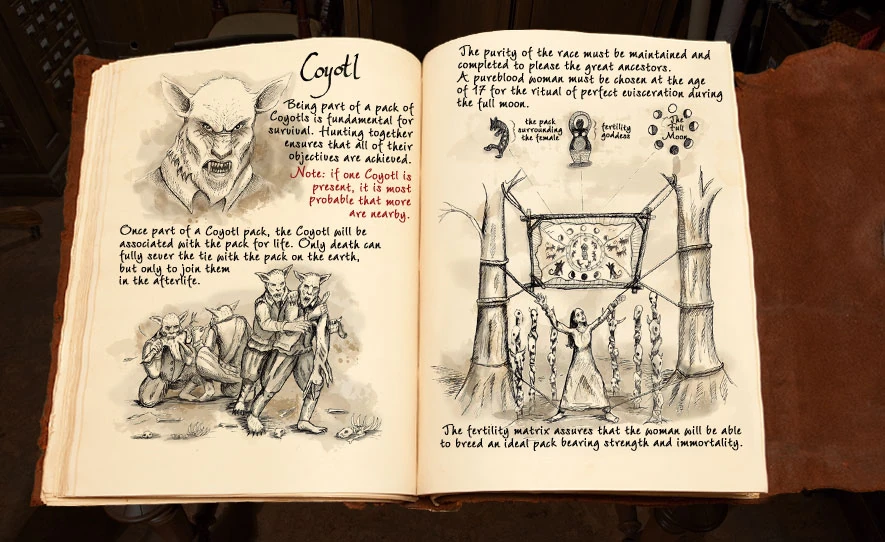 Coyotl
Being part of a pack of
Coyotls is fundamental for
survival. Hunting together
ensures that all of their
objectives are achieved.
Note: if one Coyotl is
present, it is most
probable that more
are nearby.
Once part of a Coyotl pack, the Coyotl will be
associated with the pack for life. Only death can
fully sever the tie with the pack on the earth,
but only to join them
in the afterlife.
The purity of the race must be maintained and
completed to please the great ancestors.
A pureblood woman must be chosen at the age
of 17 for the ritual of perfect evisceration during
the full moon.
the pack
surrounding
the female
fertility
goddess
The
Full
Moon
The fertility matrix assures that the woman will be able
to breed an ideal pack bearing strength and immortality.